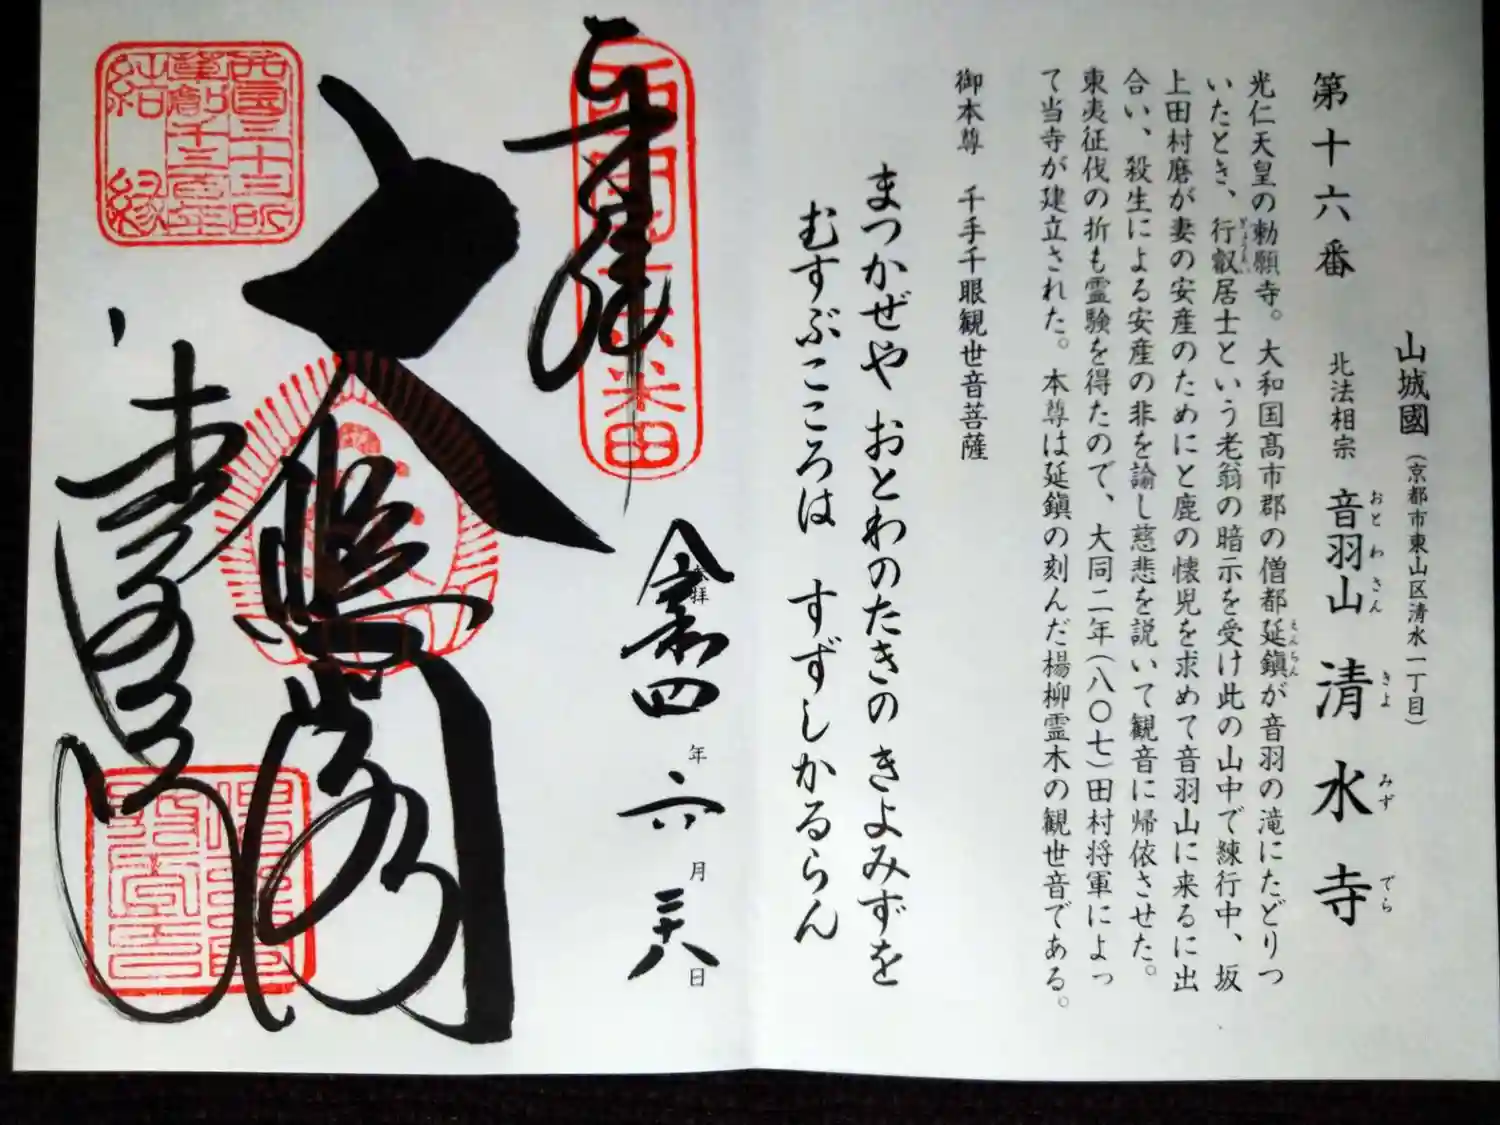 山城國（京都市東山区清水一丁目）
第十六番 北法相宗 音羽山 清水寺
おとわさん きよ みず でら
光仁天皇の勅願寺。大和国高市郡の僧都延鎮が音羽の滝にたどりつ
えんちん
いたとき、行叡居士という老翁の暗示を受け此の山中で練行中、坂
ぎょうえい
上田村磨が妻の安産のためにと鹿の懐児を求めて音羽山に来るに出
合い、殺生による安産の非を諭し慈悲を説いて観音に帰依させた。
東夷征伐の折も霊験を得たので、大同二年（八〇七）田村将軍によっ
て当寺が建立された。本尊は延鎮の刻んだ楊柳霊木の観世音である。
御本尊 千手千眼観世音菩薩
まつかぜや おとわのたきの きよみずを
むすぶこころは すずしかるらん
奉拝
令和四年六月二十八日
大悲閣
清水寺
西国三十三所
草創千三百年
結縁